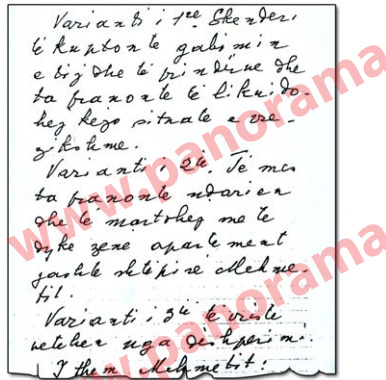 Varianti i 1re Skenderi
të kuptonte gabimin
e tij dhe të prindëve dhe
ta pranonte të likuido-
hej kejo situatë e rre-
zikshme.
Varianti i 2të. Të mos
ta pranonte ndarjen
dhe të martohej me të
dyke zënë apartament
jashtë shtëpisë Mehme-
tit.
Varianti i 3të të vriste
vetëhen nga dëshpërimi.
I them Mehmetit:
www.panorama
www.panorama
www.panorama